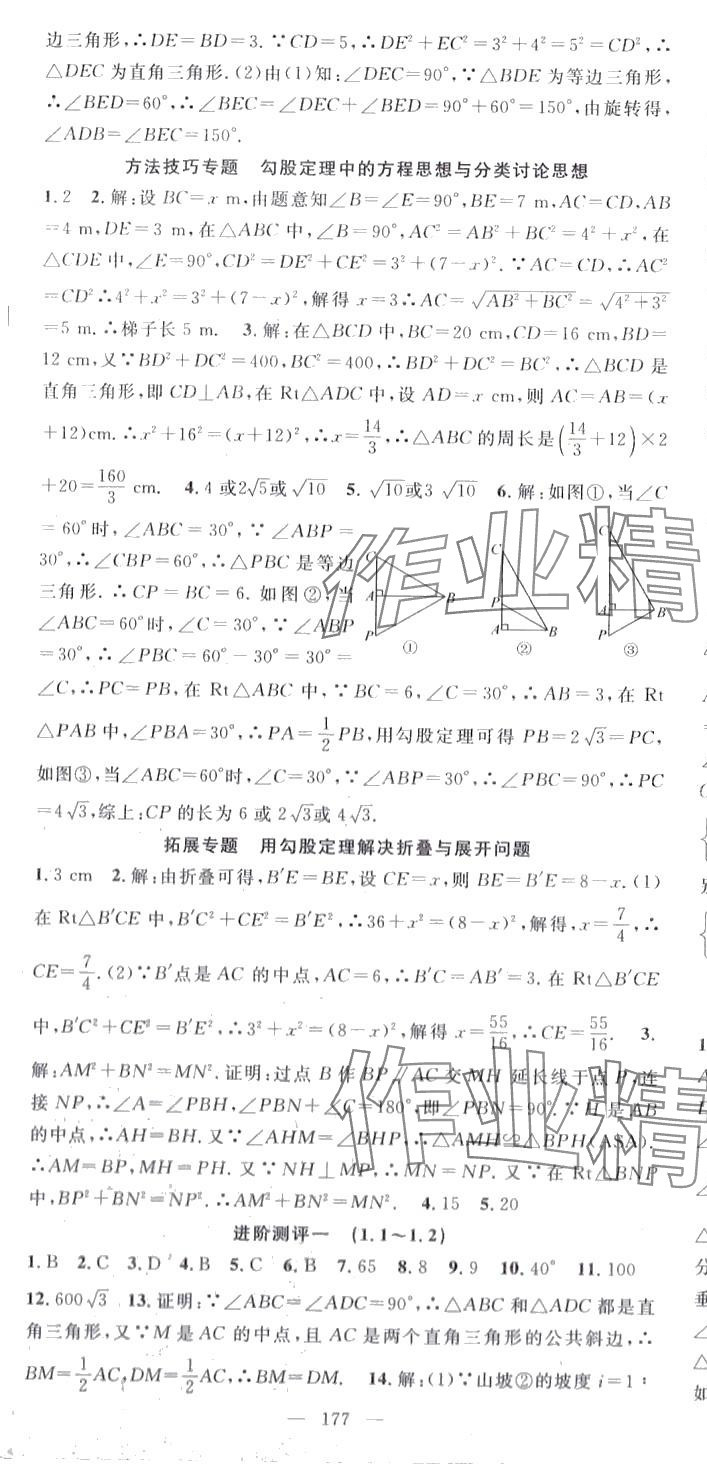 边三角形,∴DE=BD=3.∵CD=5,∴DE²+EC²=3²+4²=5²=CD²,∴
△DEC为直角三角形.(2)由(1)知:∠DEC=90°,∵△BDE为等边三角形,
∴∠BED=60°,∴∠BEC=∠DEC+∠BED=90°+60°=150°,由旋转得,
∠ADB=∠BEC=150°.
方法技巧专题 勾股定理中的方程思想与分类讨论思想
1.2 2.解:设BC=x m,由题意知∠B=∠E=90°,BE=7 m,AC=CD,AB
=4 m,DE=3 m,在△ABC中,∠B=90°,AC²=AB²+BC²=4²+x²,在
△CDE中,∠E=90°,CD²=DE²+CE²=3²+(7-x)².∵AC=CD,∴AC²
=CD²∴4²+x²=3²+(7-x)²,解得x=3∴AC=√(AB²+BC²)=√(4²+3²)
=5 m.∴梯子长5 m. 3.解:在△BCD中,BC=20 cm,CD=16 cm,BD=
12 cm,又∵BD²+DC²=400,BC²=400,∴BD²+DC²=BC²,∴△BCD是
直角三角形,即CD⊥AB,在Rt△ADC中,设AD=x cm,则AC=AB=(x
+12)cm.∴x²+16²=(x+12)²,∴x=14/3,∴△ABC的周长是(14/3+12)×2
+20=160/3 cm. 4.4或2√5或√10 5.√10或3√10 6.解:如图①,当∠C
=60°时,∠ABC=30°,∵∠ABP=
30°,∴∠CBP=60°,∴△PBC是等边
三角形.∴CP=BC=6.如图②,当
∠ABC=60°时,∠C=30°,∵∠ABP
=30°,∴∠PBC=60°-30°=30°=
C A B P ①
C P A B ②
③
∠C,∴PC=PB,在Rt△ABC中,∵BC=6,∠C=30°,∴AB=3,在Rt
△PAB中,∠PBA=30°,∴PA=1/2PB,用勾股定理可得PB=2√3=PC,
如图③,当∠ABC=60°时,∠C=30°,∵∠ABP=30°,∴∠PBC=90°,∴PC
=4√3,综上:CP的长为6或2√3或4√3.
拓展专题 用勾股定理解决折叠与展开问题
1.3 cm 2.解:由折叠可得,B′E=BE,设CE=x,则BE=B′E=8-x.(1)
在Rt△B′CE中,B′C²+CE²=B′E²,∴36+x²=(8-x)²,解得,x=7/4,∴
CE=7/4.(2)∵B′点是AC的中点,AC=6,∴B′C=AB′=3.在Rt△B′CE
中,B′C²+CE²=B′E²,∴3²+x²=(8-x)²,解得x=55/16,∴CE=55/16. 3.
解:AM²+BN²=MN².证明:过点B作BP∥AC交MH延长线于点P,连
接NP,∴∠A=∠PBH,∠PBN+∠C=180°,即∠PBN=90°.∵H是AB
的中点,∴AH=BH.又∵∠AHM=∠BHP,∴△AMH≌△BPH(ASA).
∴AM=BP,MH=PH.又∵NH⊥MP,∴MN=NP.又∵在Rt△BNP
中,BP²+BN²=NP².∴AM²+BN²=MN². 4.15 5.20
进阶测评一 (1.1~1.2)
1.B 2.C 3.D 4.B 5.C 6.B 7.65 8.8 9.9 10.40° 11.100
12.600√3 13.证明:∵∠ABC=∠ADC=90°,∴△ABC和△ADC都是直
角三角形,又∵M是AC的中点,且AC是两个直角三角形的公共斜边,∴
BM=1/2AC,DM=1/2AC,∴BM=DM. 14.解:(1)∵山坡②的坡度i=1:
— 177 —
作业精
作业精